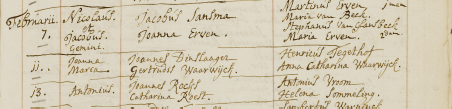 Martinus Erven
Februarii. Nicolaus. Jacobus Sansma Maria van Beek.
7. et Jacobus Joanna Erven. Stephanus van Beek
Gemini. Maria Erven
11. Joanna Joannes Dinslaager Henricus Tegethof
Maria. Gertrudis Waarwijck. Anna Catharina Waarwijck.
13. Antonius. Joannes Roest Antonius Vroom
Catharina Roest. Helena Sommeling.
Lambertus Warninck